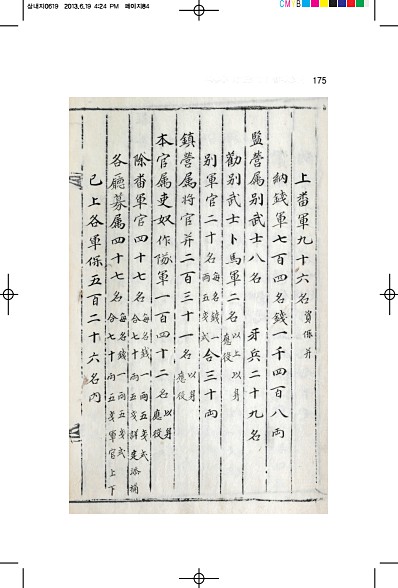 삼내지0619 2013.6.19 4:24 PM 페이지84
CMYB
175
上番軍九十六名 資保并
納錢軍七百四名錢一千四百八兩
監營属別武士八名 牙兵二十九名
勸別武士卜馬軍二名 以上以身應役
別軍官二十名 每名錢一兩五戔式 合三十兩
鎮營属將官并二百三十一名 以身應役
本官属吏奴作隊軍一百四十二名 以身應役
除番軍官四十七名 每名錢一兩五戔式合七十兩五戔
各廳募属四十七名 每名錢一兩五戔式合七十兩五戔軍官上下
已上各軍保五百二十六名內